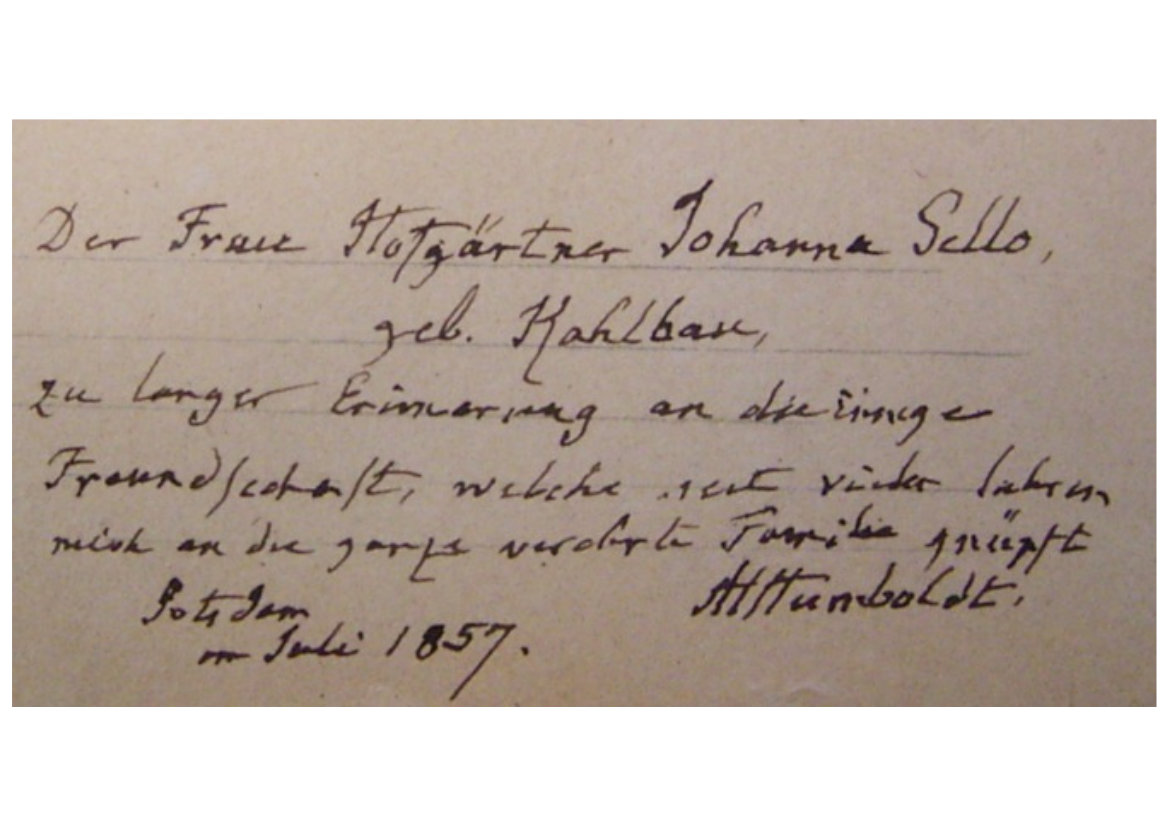 Der Frau Hofgärtner Johanna Sello,
geb. Kahlbau,
zu langer Erinnerung an die innige
Freundschaft, welche seit vielen Jahren
mich an die ganze verehrte Familie knüpft
Potsdam AlHumboldt.
im Juli 1857.